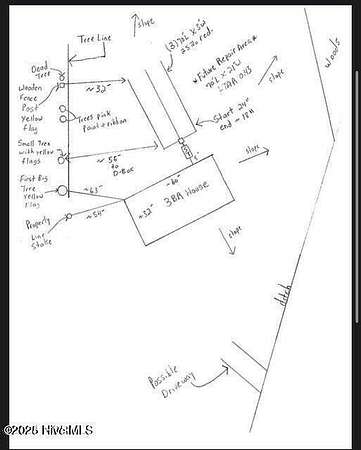 slope
Tree Line
(3) 70' X 3' W
25% red.
Dead
Tree
Wooden
Fence
Post
Yellow
flag
~32'
* Future Repair Area *
70' X 21' W
LTAR 0.43
slope
woods
Trees pink
Paint & ribbon
Start 24"
end = 18"
Small Tree
with yellow
flags
~55'
to
D-Box
slope
First Big
Tree
yellow
flag
~63'
~60'
~32'
3BR House
Property
Line
Stake
~54'
slope
ditch
Possible
Driveway
©2025 HiveMLS